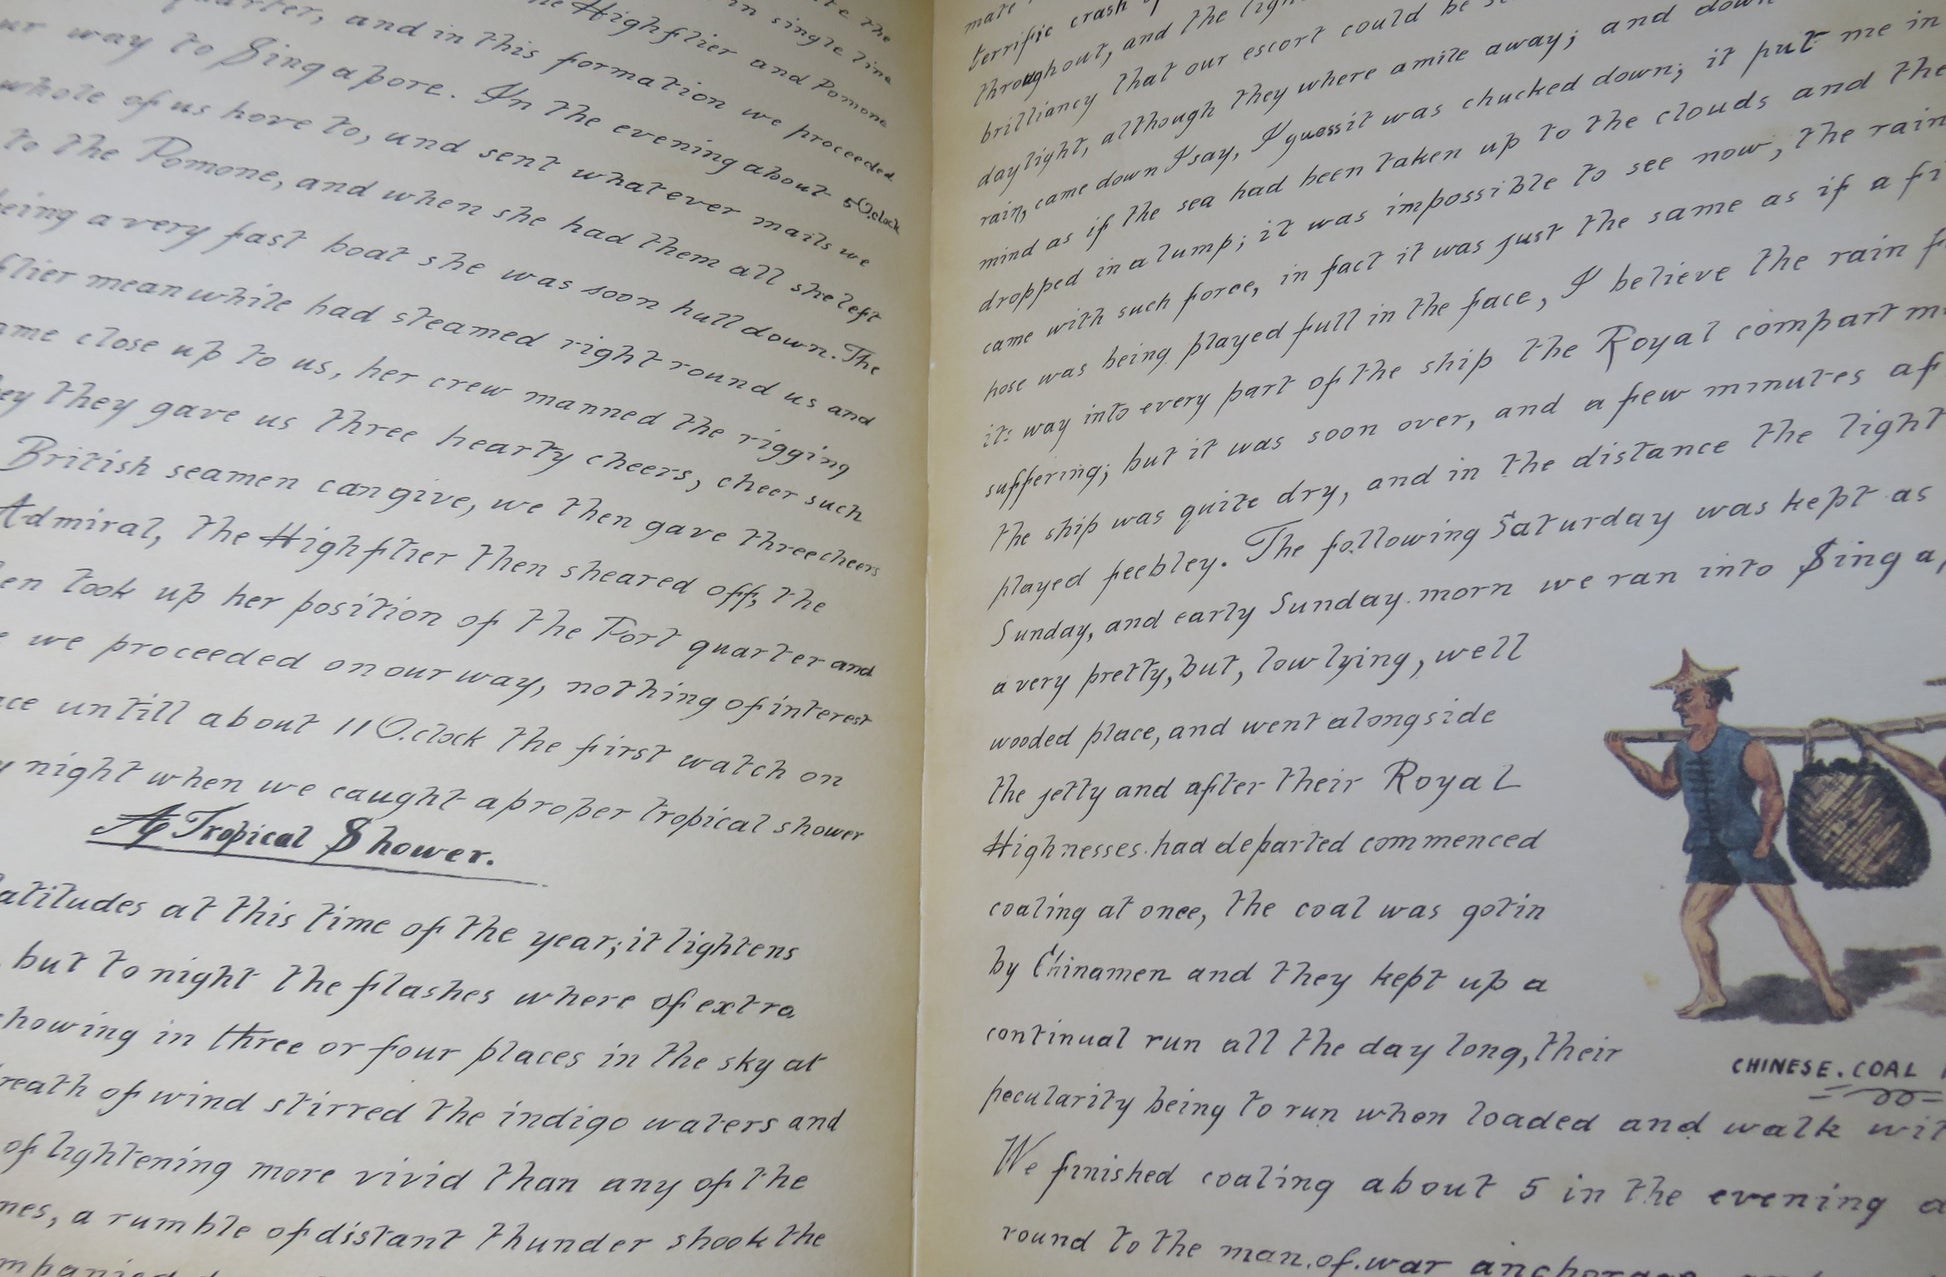 the
in single line
quarter, and in this formation we proceeded
the Highflier and Pomone
our way to Singapore. In the evening about 5 O.clock
whole of us hove to, und sent whatever mails we
to the Pomone, and when she had them all she left
being a very fast boat she was soon hull down. The
flier meanwhile had steamed right round us and
came close up to us, her crew manned the rigging
they gave us three hearty cheers, cheer such
British seamen can give, we then gave three cheers
Admiral, the Highflier then sheared off, the
took up her position of the Port quarter and
we proceeded on our way, nothing of interest
untill about 11 O.clock the first watch on
night when we caught a proper tropical shower
A Tropical Shower.
latitudes at this time of the year; it lightens
but to night the flashes where of extra
showing in three or four places in the sky at
breath of wind stirred the indigo waters and
of lightening more vivid than any of the
a rumble of distant thunder shook the
terrific crash
throughout, and the
brilliancy that our escort could be
daylight, although they where a mile away; and down
rain, came down I say, I guess it was chucked down; it put me in
mind as if the sea had been taken up to the clouds and the
dropped in a lump; it was impossible to see now, the rain
came with such force, in fact it was just the same as if a fi
hose was being played full in the face, I believe the rain f
its way into every part of the ship the Royal compartm
suffering; but it was soon over, and a few minutes af
the ship was quite dry, and in the distance the light
played feebley. The following Saturday was kept as
Sunday, and early Sunday. morn we ran into Singa
a very pretty, but, low lying, well
wooded place, and went alongside
the jetty and after their Royal
Highnesses. had departed commenced
coaling at once, the coal was got in
by Chinamen and they kept up a
continual run all the day long, their
CHINESE. COAL
pecularity being to run when loaded and walk wit
We finished coaling about 5 in the evening a
round to the man.of.war anchorage